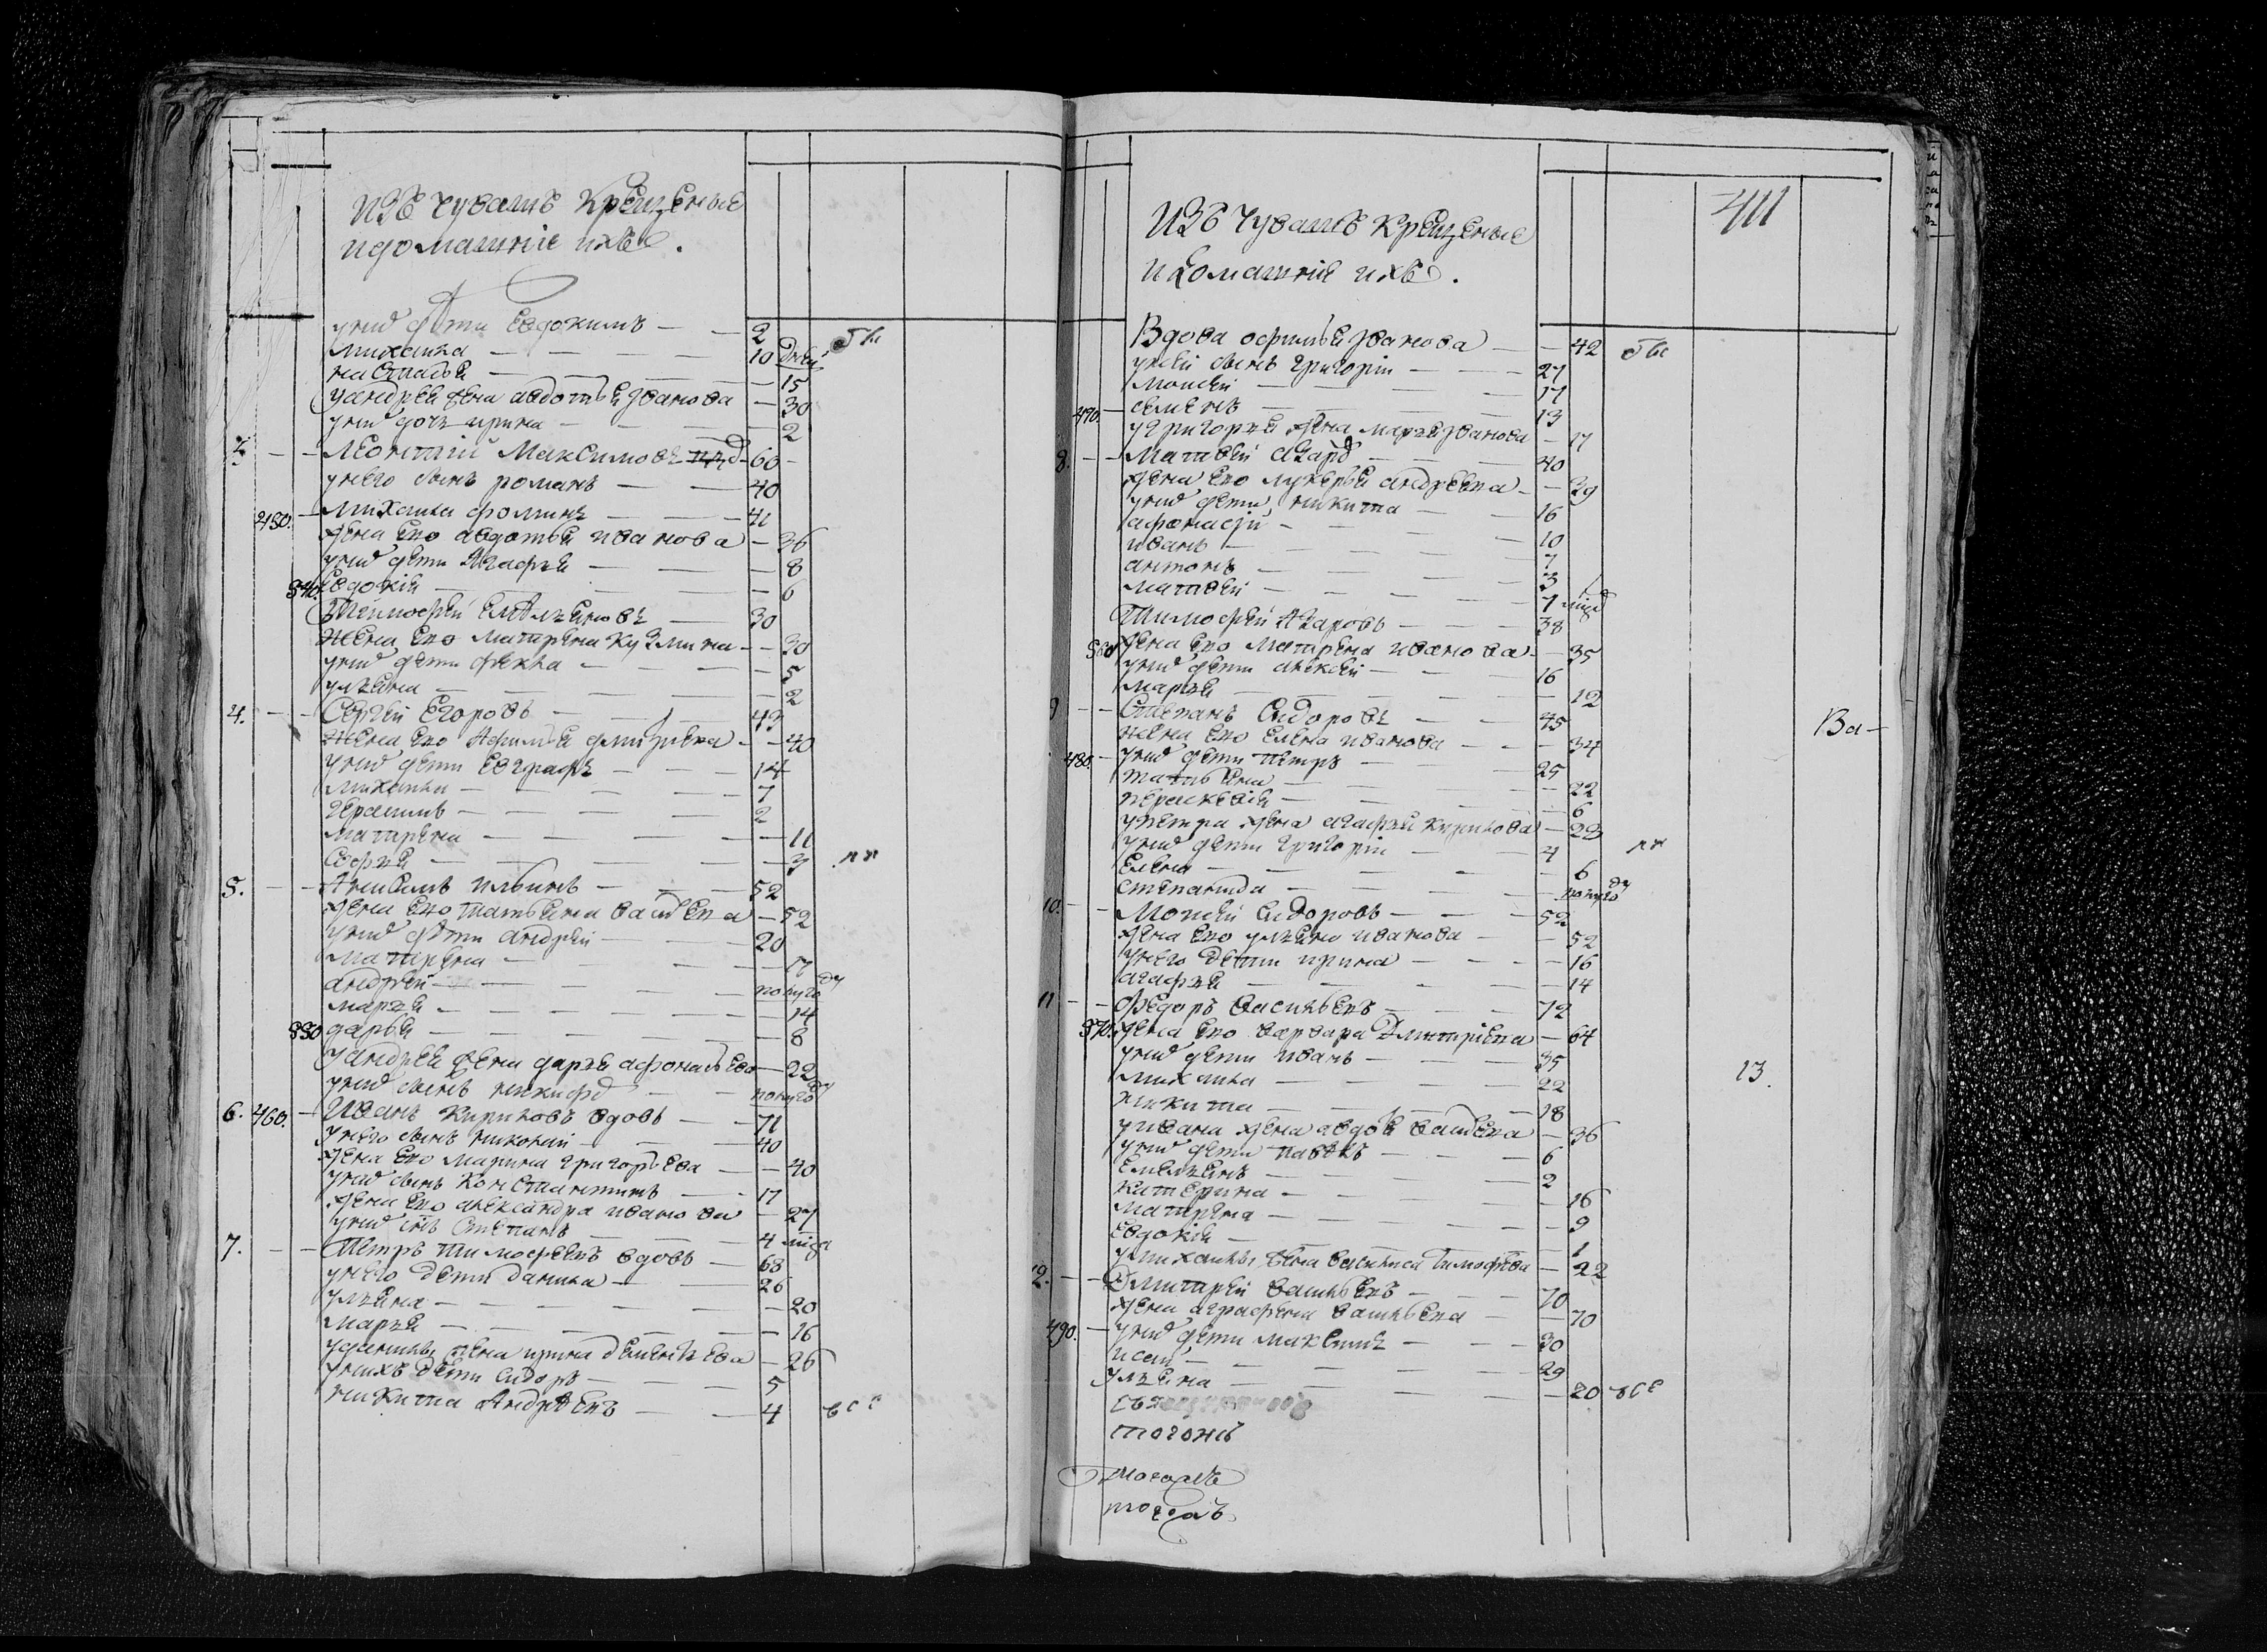 изъ чувашъ крещеные
и домашніе ихъ.
у нид дѣти Евдокимъ — — 2 бы
михаила — — — 10 дней
настасья — — — 15
у андрея жена авдотья иванова — 30
у нид дочь ирина — — — 2
3 — — Леонтій Максимовъ — 60
у него сынъ романъ — — 40
450. — михаила фоминъ — — 41
жена ево авдотья иванова — 36
у нид дѣти Агафья — — — 8
540. Евдокія — — — 6
Тимофей емельяновъ — 30
жена ево матрена кузмина — — 30
у нид дѣти фекла — — — 5
ульяна — — — 2
4. — — Сергей Егоровъ — — 43
жена ево Афимья — — 40
у нид дѣти Евграфъ — — 14
михаила — — — 7
герасимъ — — — 2
матрена — — — 11
Софья — — — 3
5. — — ильинъ — — 52
жена ево татьяна — 52
у нид дѣти андрей — — 20
матрена — — — 17
андрей — — — полуго ду
марья — — — 14
550 дарья — — — 8
у андрея жена дарья афонасьева — 22
у нид сынъ — — полуго ду
6. 460. — Иванъ кириловъ вдовъ — — 71
у него сынъ — — 40
жена ево марина григорьева — — 40
у нид сынъ константинъ — — 17
жена ево александра иванова — 27
у нид сынъ Степанъ — — 4
7. — — Петръ тимофеевъ вдовъ — 68
у него дѣти данила — — 26
ульяна — — — 20
марья — — — 16
у данилы жена ирина — 26
у нихъ дѣти сидоръ — — 5
никита Андрѣевъ — — 4
411
изъ чувашъ крещеные
и домашніе ихъ.
Вдова афимья иванова — — 42 бы
у ней сынъ григорій — — 27
моисей — — — 17
470. — семенъ — — — 13
у григорья жена марья иванова — 17
8. — — матвей — — 40
жена ево лукерья андреева — — 39
у нид дѣти никита — — 16
афонасій — — — 10
иванъ — — — 7
антонъ — — — 3
матвей — — — 1
Тимофей Азаровъ — — 38
560 жена ево матрена иванова — — 35
у нид дѣти алексей — — 16
марья — — — 12
9 — — Степанъ Сидоровъ — — 45
жена ево елена иванова — — 34
480. — у нид дѣти петръ — — 25
татьяна — — — 22
прасковія — — — 6
у петра жена агафья кирилова — 23
у нид дѣти григорій — — 4
Елена — — — 6
степанида — — полуго ду
10. — — Моисей Сидоровъ — — 52
жена ево ульяна иванова — — 52
у него дѣти ирина — — 16
агафья — — — 14
11 — — федоръ васильевъ — — 72
570. жена ево варвара Дмитріева — 64
у нид дѣти иванъ — — 35
михаила — — — 22
никита — — — 18
у ивана жена — 36
у нид дѣти павелъ — — 6
емельянъ — — — 2
катерина — — — 16
матрена — — — 9
евдокія — — — 1
у михаилы жена василиса тимофеева — 22
12. — — Дмитрей васильевъ — — 70
жена аграфена васильева — — 70
490. — у нид дѣти максимъ — — 30
— — — 29
ульяна — — — 20
тогожъ
тогожъ
Ва—
13.